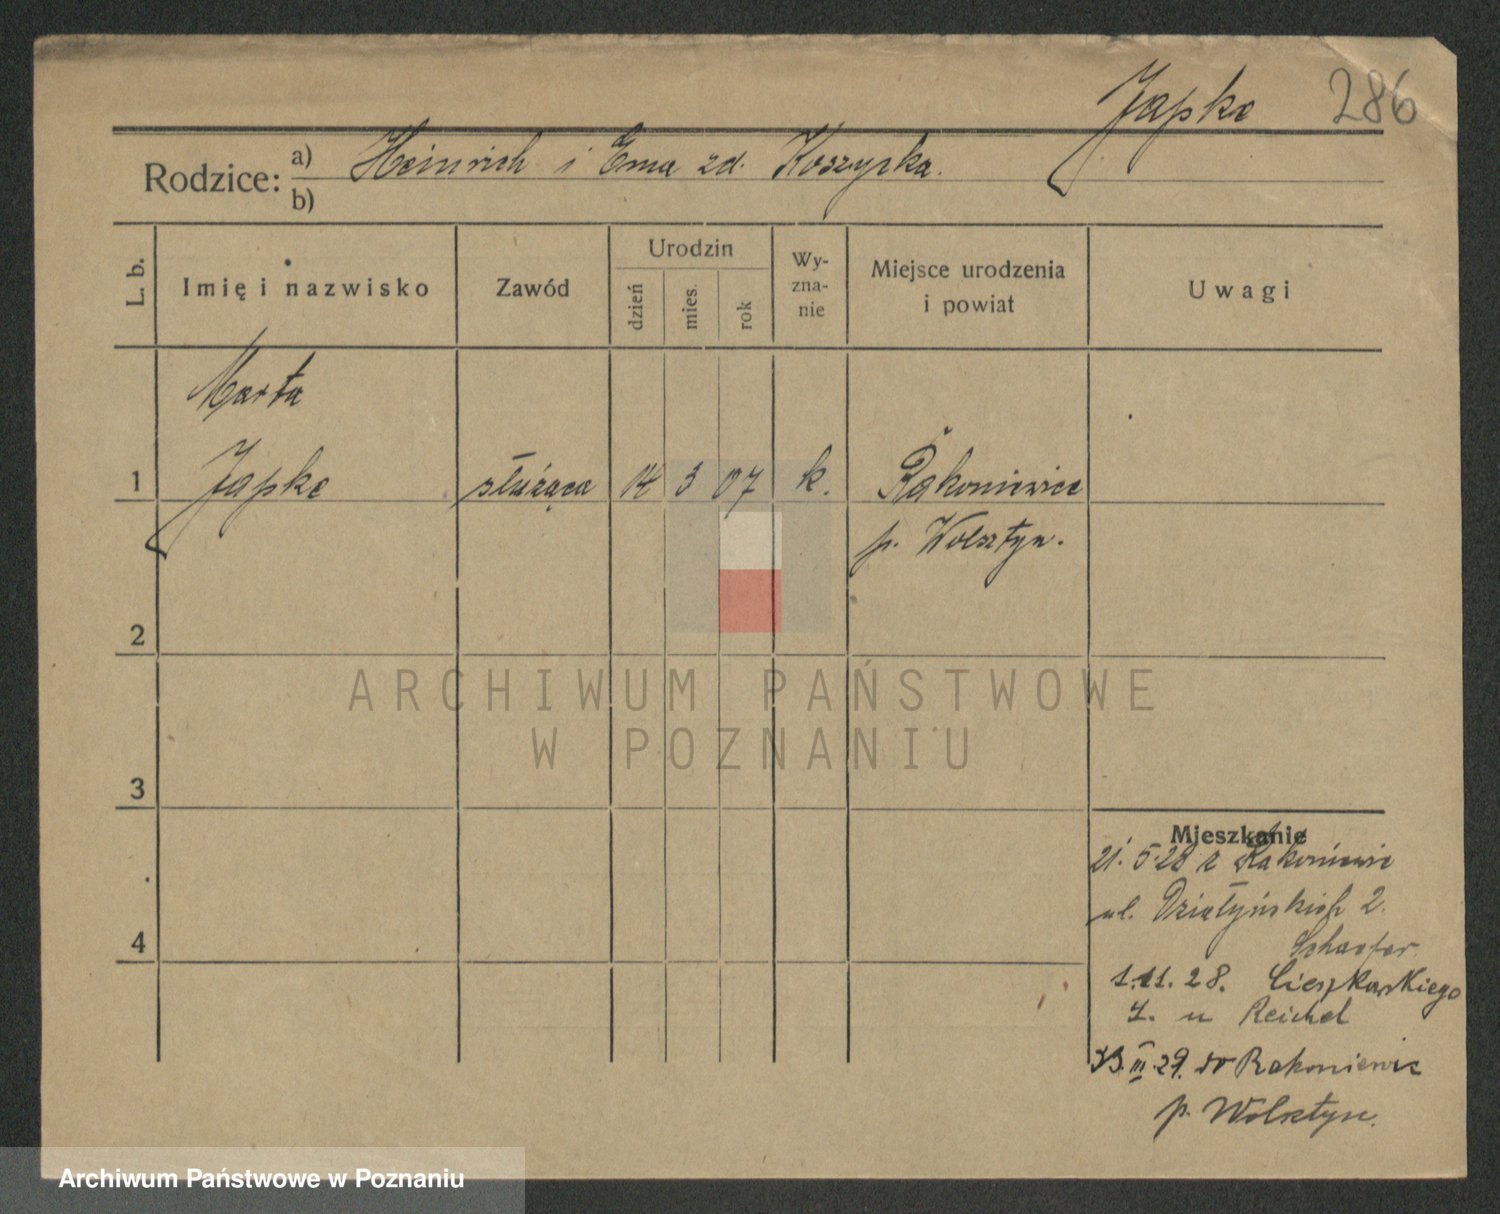 Japke 286
Rodzice: a) Heinrich i Ema zd. Koszycka.
b)
L. b. Imię i nazwisko Zawód Urodzin dzień mies. rok Wy-zna-nie Miejsce urodzenia i powiat Uwagi
Marta
1 Japke służąca 14 3 07 k. Rakoniewice
p. Wolsztyn.
2
3
4
Mieszkanie
21. 5. 28 z Rakoniewic
ul. Działyńskich 2.
Schaefer.
1.11.28. Cieszkowskiego
u Reichel
III.29. do Rakoniewic
p. Wolsztyn.
ARCHIWUM PAŃSTWOWE
W POZNANIU
Archiwum Państwowe w Poznaniu